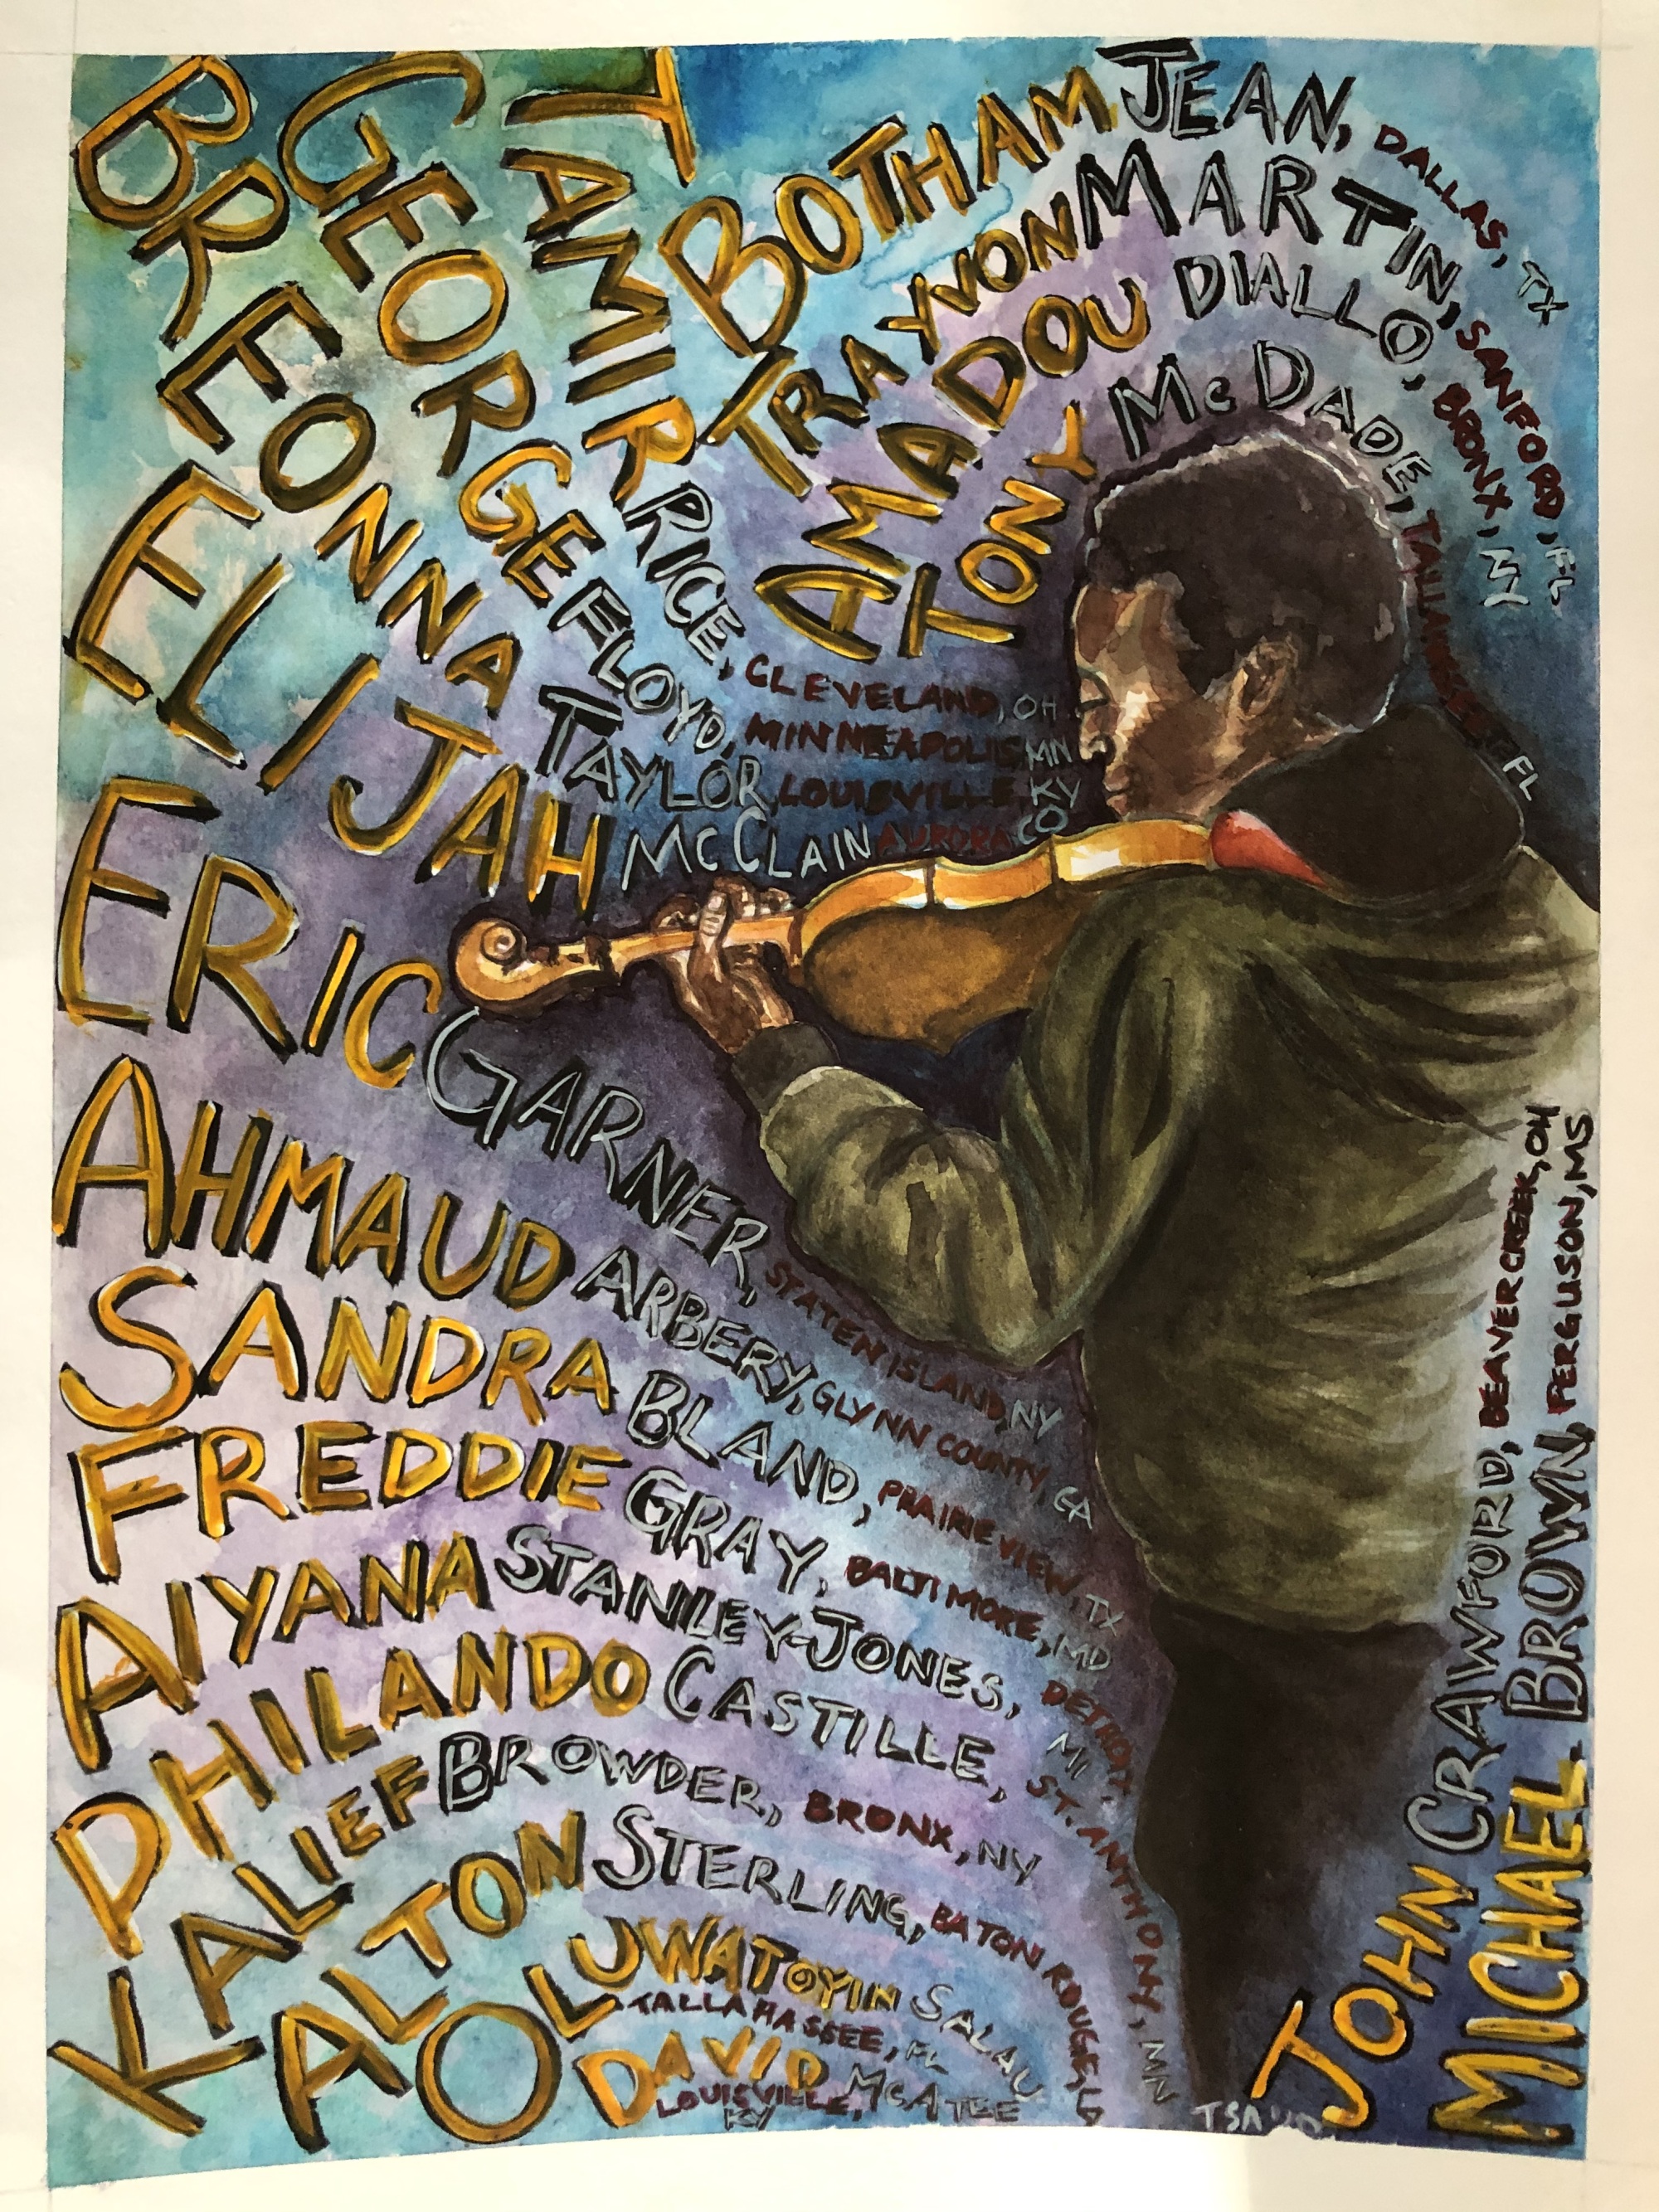 BOTHAM JEAN, DALLAS, TX
TRAYVON MARTIN, SANFORD, FL
AMADOU DIALLO, BRONX, NY
TONY McDADE, TALLAHASSEE, FL
TAMIR RICE, CLEVELAND, OH
GEORGE FLOYD, MINNEAPOLIS MN
BREONNA TAYLOR, LOUISVILLE, KY
ELIJAH McCLAIN AURORA CO
ERIC GARNER, STATEN ISLAND, NY
AHMAUD ARBERY, GLYNN COUNTY, GA
SANDRA BLAND, PRAIRIE VIEW, TX
FREDDIE GRAY, BALTIMORE, MD
AIYANA STANLEY-JONES, DETROIT, MI
PHILANDO CASTILLE, ST. ANTHONY, MN
KALIEF BROWDER, BRONX, NY
ALTON STERLING, BATON ROUGE, LA
OLUWATOYIN SALAU
TALLAHASSEE, FL
DAVID McATEE
LOUISVILLE, KY
JOHN CRAWFORD, BEAVERCREEK, OH
MICHAEL BROWN, FERGUSON, MS